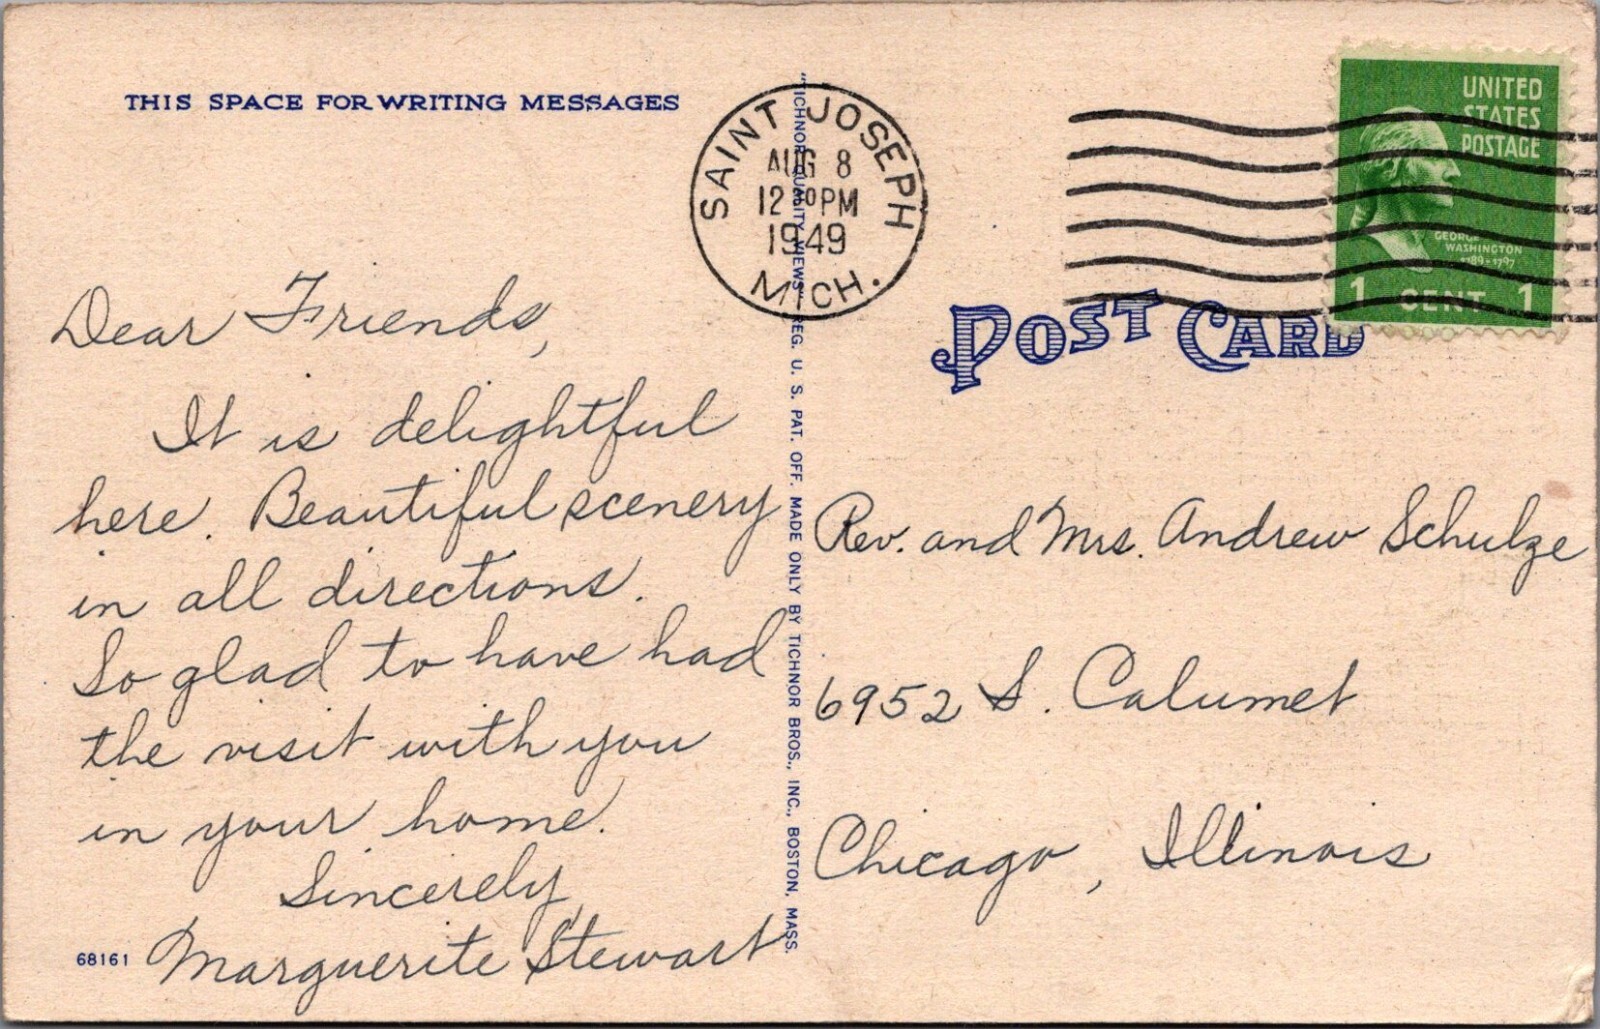 THIS SPACE FOR WRITING MESSAGES
Dear Friends,
It is delightful
here. Beautiful scenery
in all directions.
So glad to have had
the visit with you
in your home.
Sincerely,
Marguerite Stewart
68161
"TICHNOR QUALITY VIEWS" REG. U. S. PAT. OFF. MADE ONLY BY TICHNOR BROS., INC., BOSTON, MASS.
SAINT JOSEPH
AUG 8
12 PM
1949
MICH.
UNITED
STATES
POSTAGE
GEORGE
WASHINGTON
1789-1797
1 CENT 1
POST CARD
Rev. and Mrs. Andrew Schulze
6952 S. Calumet
Chicago, Illinois